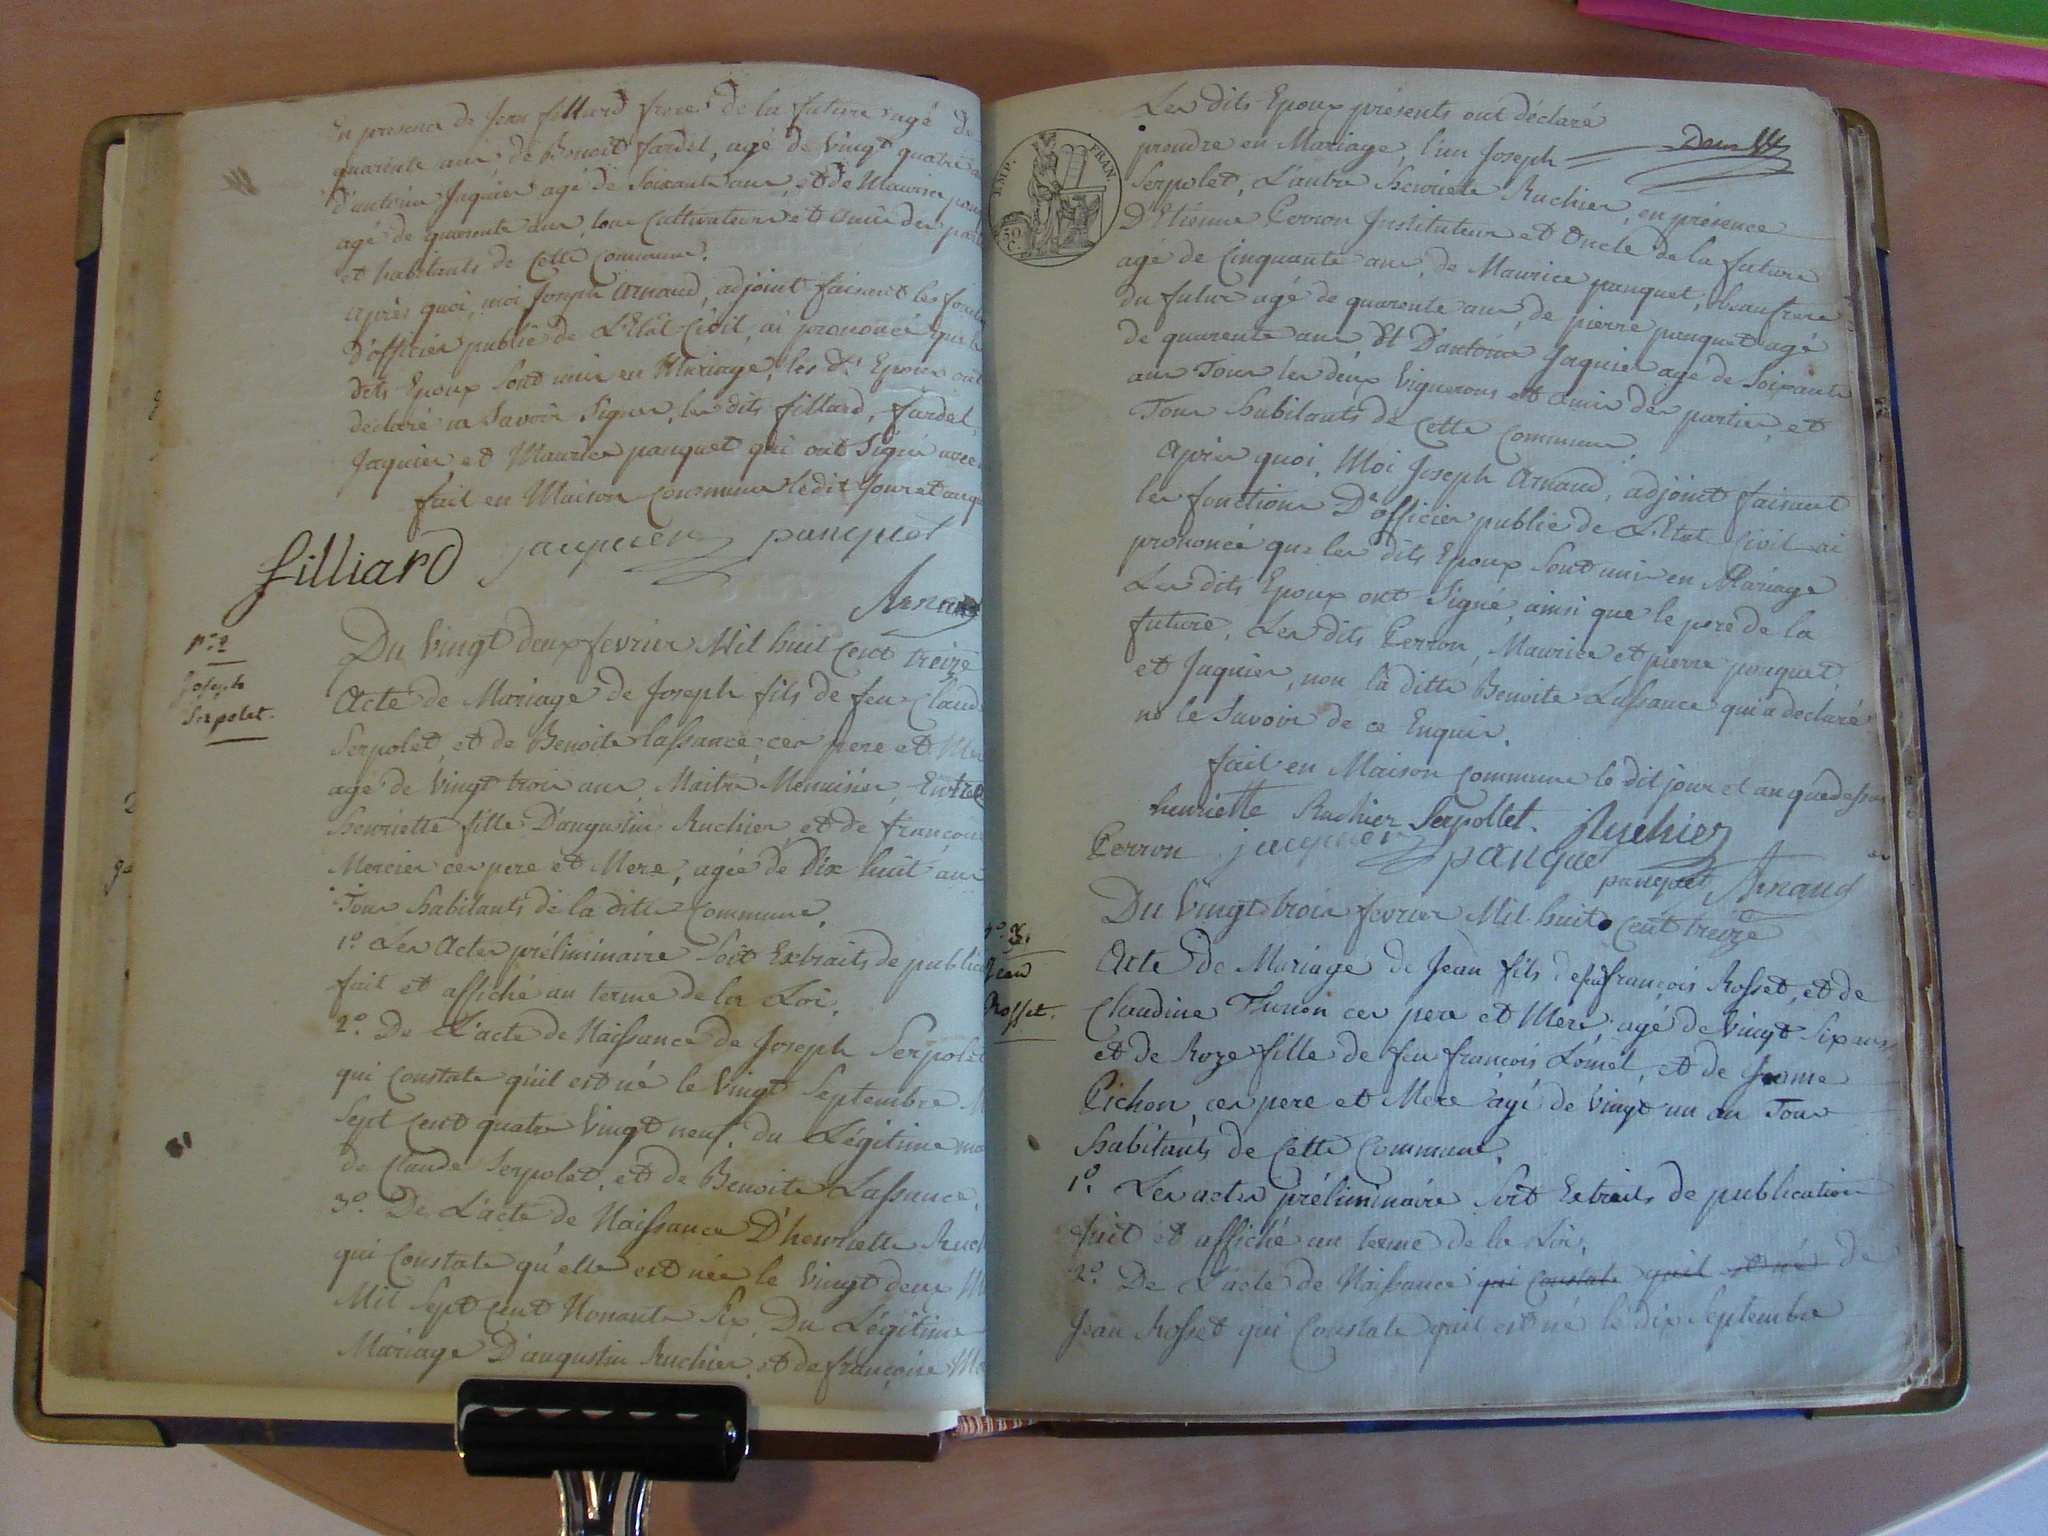 En presence de Jean fillard frere de la future agé de
quarente ans de Benoit fardel, agé de vingt quatre
d'antoine Jaquier agé de soixante ans, et de Maurice
agé de quarente ans, tous cultivateurs et amis des
et habitants de cette commune.
après quoi, moi Joseph Arnaud, adjoint faisant les
d'officier public de L'Etat Civil, ai prononcé que
dits Epoux sont unis en Mariage, les dt. Epoux ont
déclaré ne savoir signer, les dits fillard, fardel,
Jaquier et Maurice panquet qui ont signé avec
fait en Maison commune ledit Jour et an
filliard jaquier panquet
Arnaud
Du vingt deux fevrier Mil huit cent treize
N.º 2
Joseph
Serpolet.
Acte de Mariage de Joseph fils de feu Claude
Serpolet, et de Benoite lassance, ces pere et
agé de vingt trois ans Maitre Menuisier, Entre
henriette fille D'augustin Ruchier et de francoise
Mercier ces pere et Mere, agée de Dix huit ans
Tous habitants de la ditte commune.
1.º Les Actes préliminaire sont Extraits de
fait et affiché au terme de la Loi.
2.º De L'acte de Naissance de Joseph Serpolet
qui constate qu'il est né le vingt Septembre
Sept cent quatre vingt neuf, du Légitime
de Claude Serpolet, et de Benoite Lassance,
3.º De L'acte de Naissance D'henriette
qui constate qu'elle est née le vingt deux
Mil Sept cent Nonante Six, Du Légitime
Mariage D'augustin Ruchier et de françoise
IMP. FRAN.
50 C.
Deux
Les dits Epoux présents ont déclaré
prendre en Mariage, l'un Joseph
Serpolet, L'autre henriete Ruchier, en présence
D'Etienne Perron Instituteur et Oncle de la future
agé de Cinquante ans, de Maurice panquet, beaufrere
du futur agé de quarente ans, de pierre panquet agé
de quarente ans Et D'antoine Jaquier agé de Soixante
ans Tous les deux vignerons et amis des parties, et
Tous habitants de cette commune.
Après quoi, Moi Joseph Arnaud, adjoint faisant
les fonctions D'officier public de L'Etat Civil ai
prononcé que les dits Epoux sont unis en Mariage
Les dits Epoux ont signé, ainsi que le pere de la
future, Les dits Perron, Maurice et pierre panquet,
et Jaquier, non la ditte Benoite Lassance qui a declaré
ne le savoir de ce Enquis.
fait en Maison commune le dit jour et an que dessus
henriette Ruchier Serpollet. Ruchier
Perron jacquier panquet
panquet Arnaud
Du vingt trois fevrier Mil huit cent treize
N.º 3.
Jean
Rosset.
Acte de Mariage de Jean fils de feu françois Rosset, et de
Claudine Thuron ces pere et Mere agé de vingt Six ans
et de Roze fille de feu françois Lomel, et de
Pichon, ces pere et Mere agé de vingt un an Tous
habitants de cette commune.
1.º Les actes préliminaire sont Extraits de publication
fait et affiché au terme de la Loi,
2.º De L'acte de Naissance qui constate quil est né de
Jean Rosset qui constate quil est né le dix Septembre